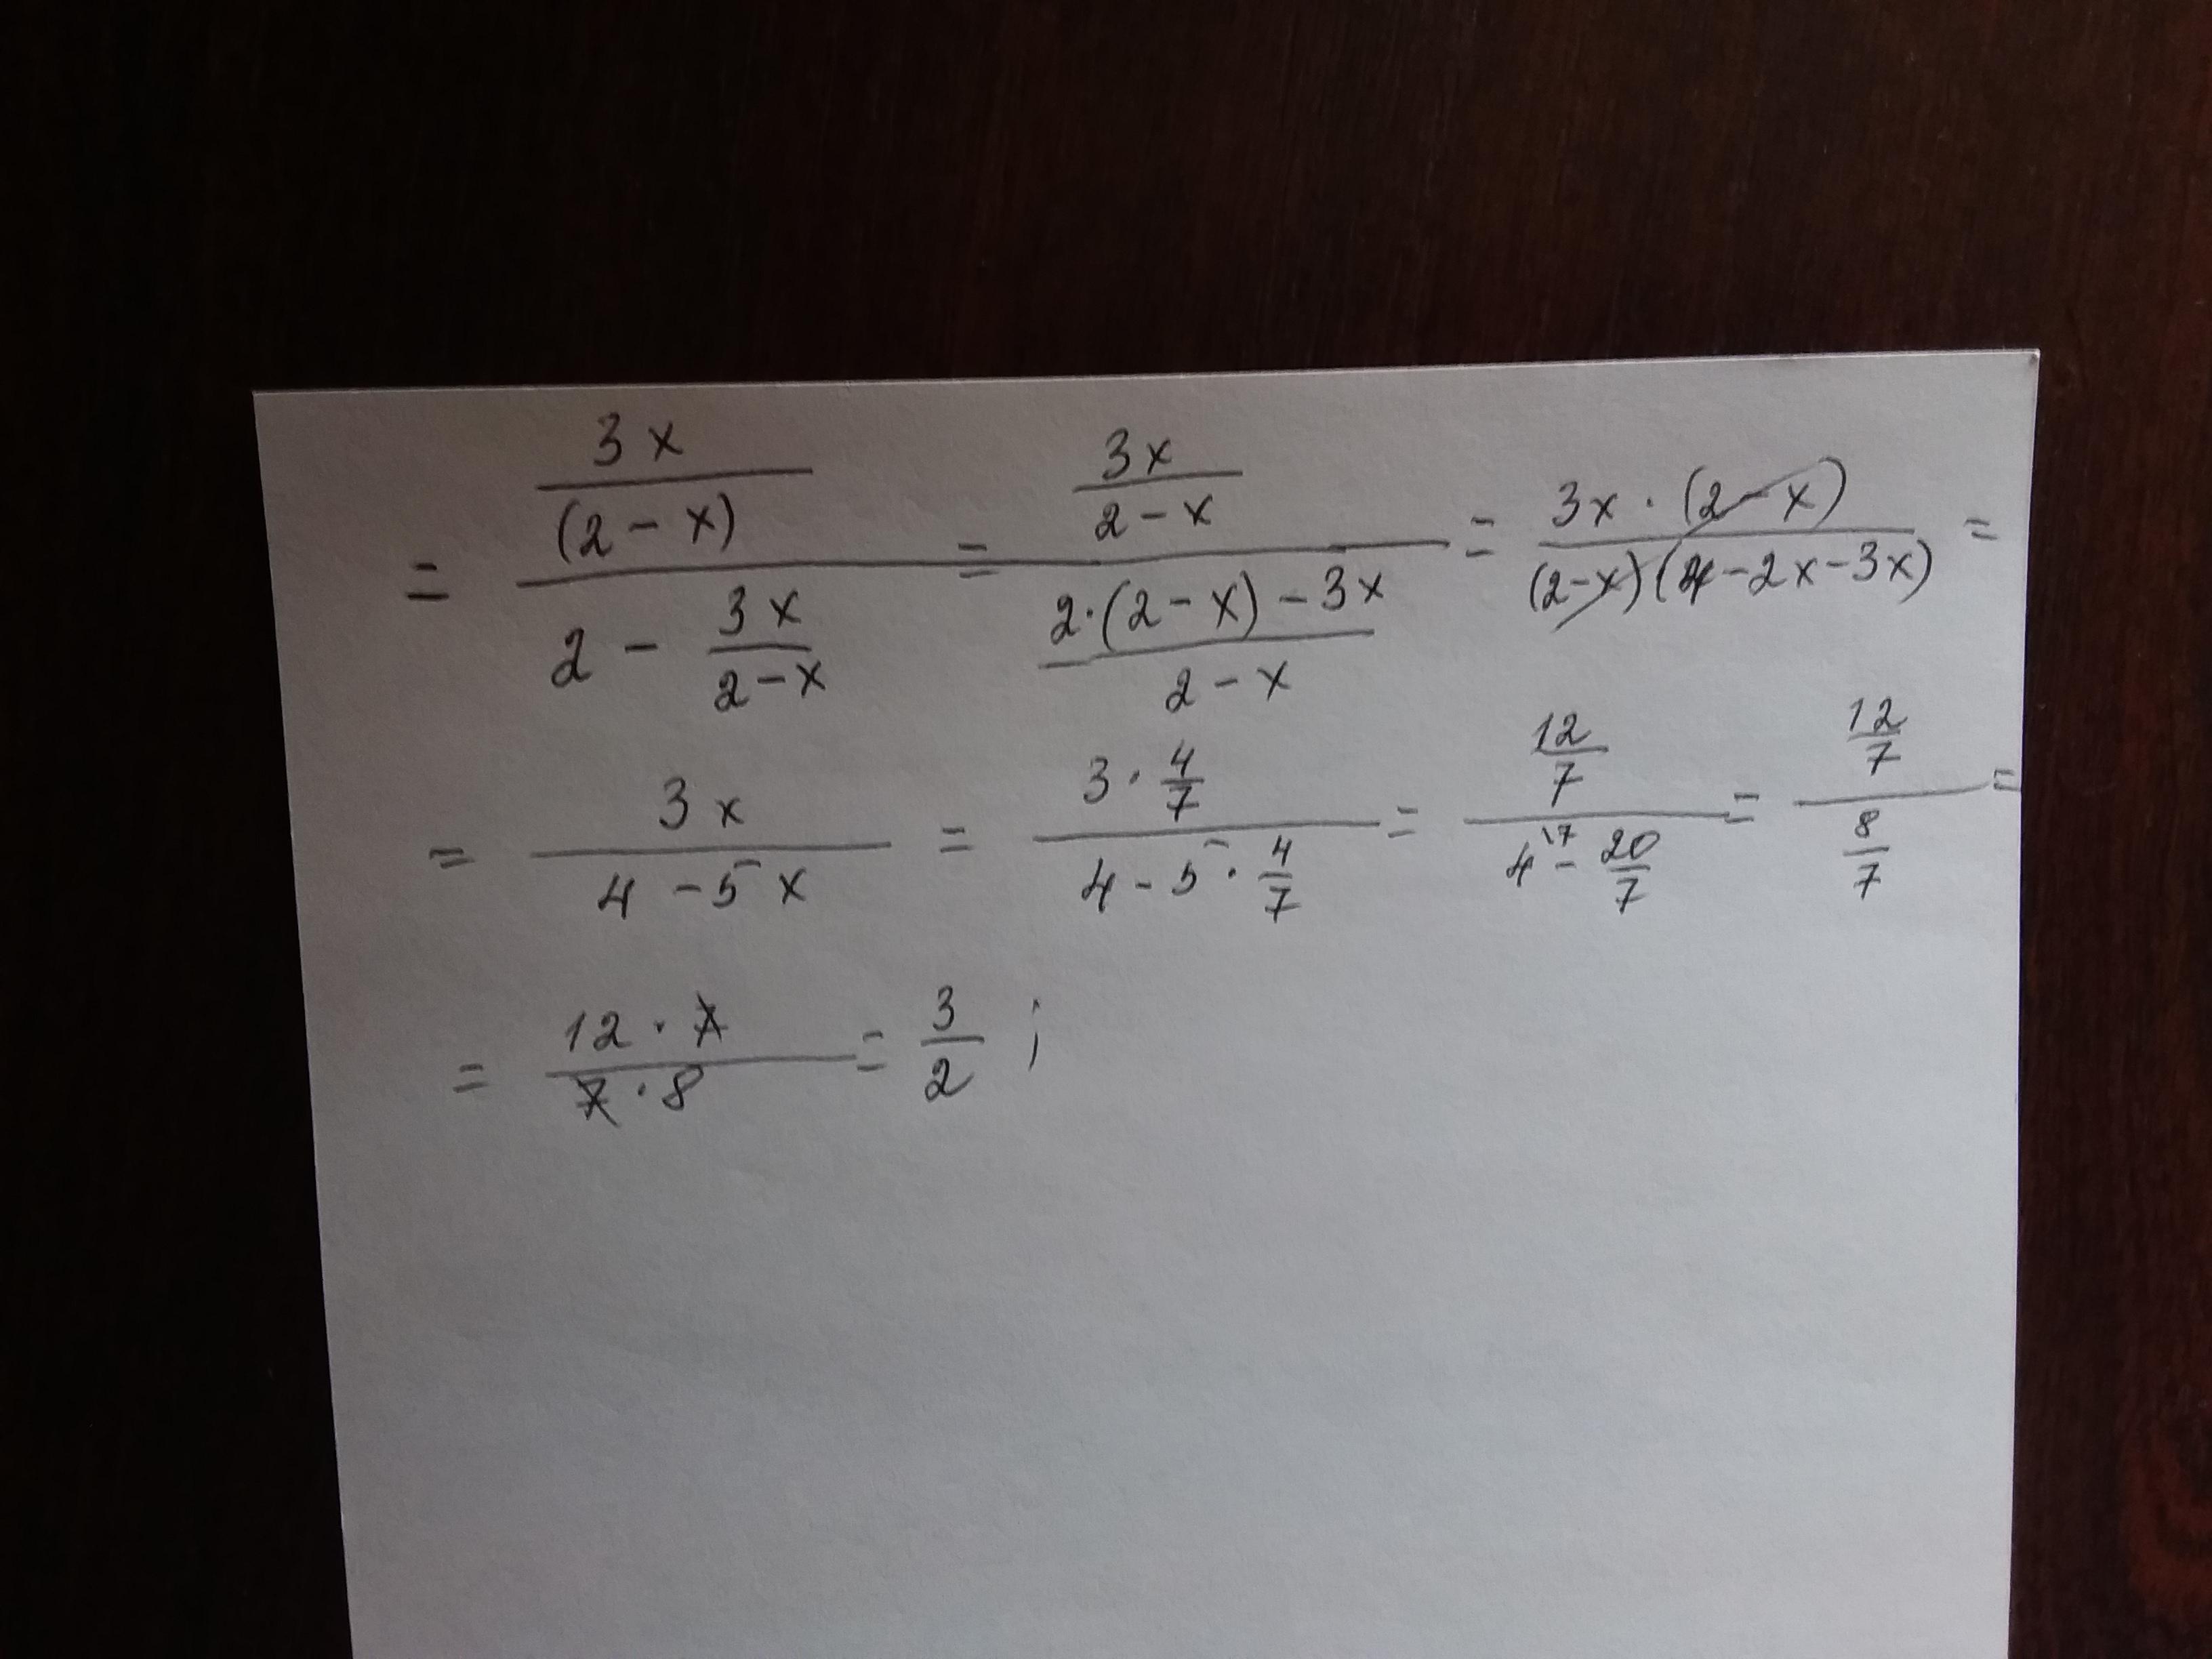 = (3x/(2-x))/(2 - 3x/(2-x)) = (3x/(2-x))/((2·(2-x)-3x)/(2-x)) = (3x·(2-x))/((2-x)(4-2x-3x)) =
= 3x/(4-5x) = (3·4/7)/(4-5·4/7) = (12/7)/(4\7 - 20/7) = (12/7)/(8/7) =
= (12·7)/(7·8) = 3/2 ;